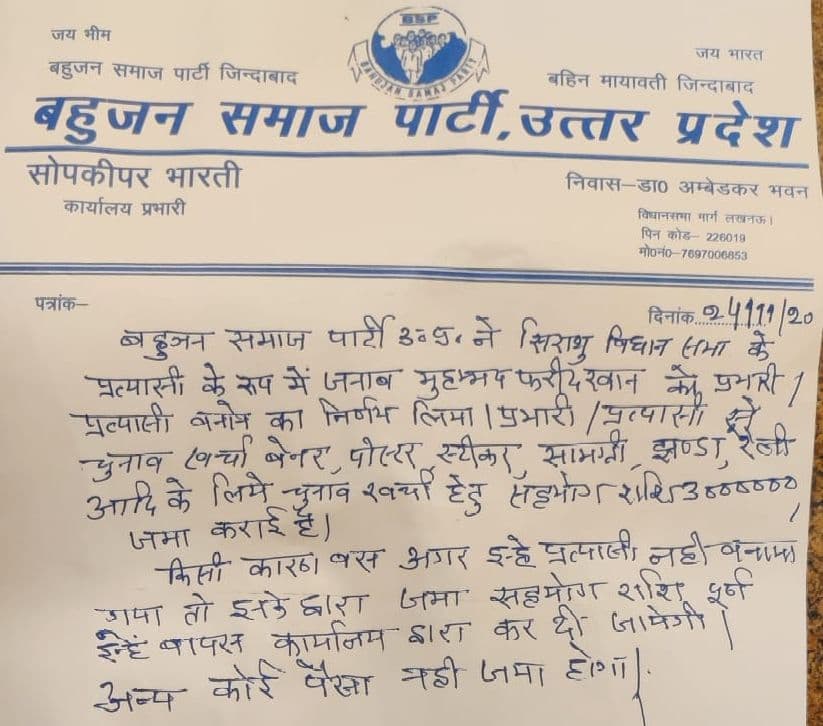 जय भीम
जय भारत
BSP
BAHUJAN SAMAJ PARTY
बहुजन समाज पार्टी जिन्दाबाद
बहिन मायावती जिन्दाबाद
बहुजन समाज पार्टी, उत्तर प्रदेश
सोपकीपर भारती
कार्यालय प्रभारी
निवास–डा0 अम्बेडकर भवन
विधानसभा मार्ग लखनऊ।
पिन कोड– 226019
मो0नं0–7697006853
पत्रांक–
दिनांक 24/11/20
बहुजन समाज पार्टी उ॰प्र॰ ने सिराथु विधान सभा के
प्रत्यासी के रूप में जनाब मुहम्मद फरीद खान को प्रभारी /
प्रत्यासी बनाने का निर्णय लिया। प्रभारी / प्रत्यासी
चुनाव खर्चा बेनर, पोस्टर, स्टीकर, सामग्री, झण्डा, रैली
आदि के लिये चुनाव खर्चा हेतु सहयोग राशि 3000000
जमा कराई है।
किसी कारण वस अगर इन्हे प्रत्यासी नही बनाया
गया तो इनके द्वारा जमा सहयोग राशि पूर्ण
इन्हें वापस कार्यालय द्वारा कर दी जायेगी।
अन्य कोई पैसा नही जमा होगा।